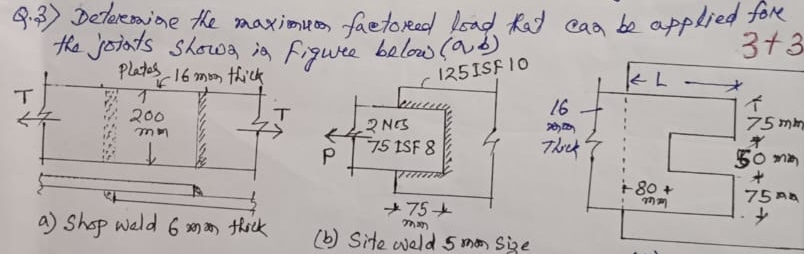 Q.3) Determine the maximum factored load that can be applied for
the joints shown in Figure below (a,b)
3+3
Plates 16 mm thick
125 ISF 10
L
T
200
mm
T
2 NOS
75 ISF 8
P
16
mm
Thick
75 mm
50 mm
75 mm
80
mm
75
mm
a) Shop weld 6 mm thick
(b) Site weld 5 mm size